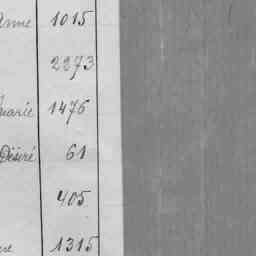 Anne 1015
2273
Marie 1476
Désiré 61
405
1315